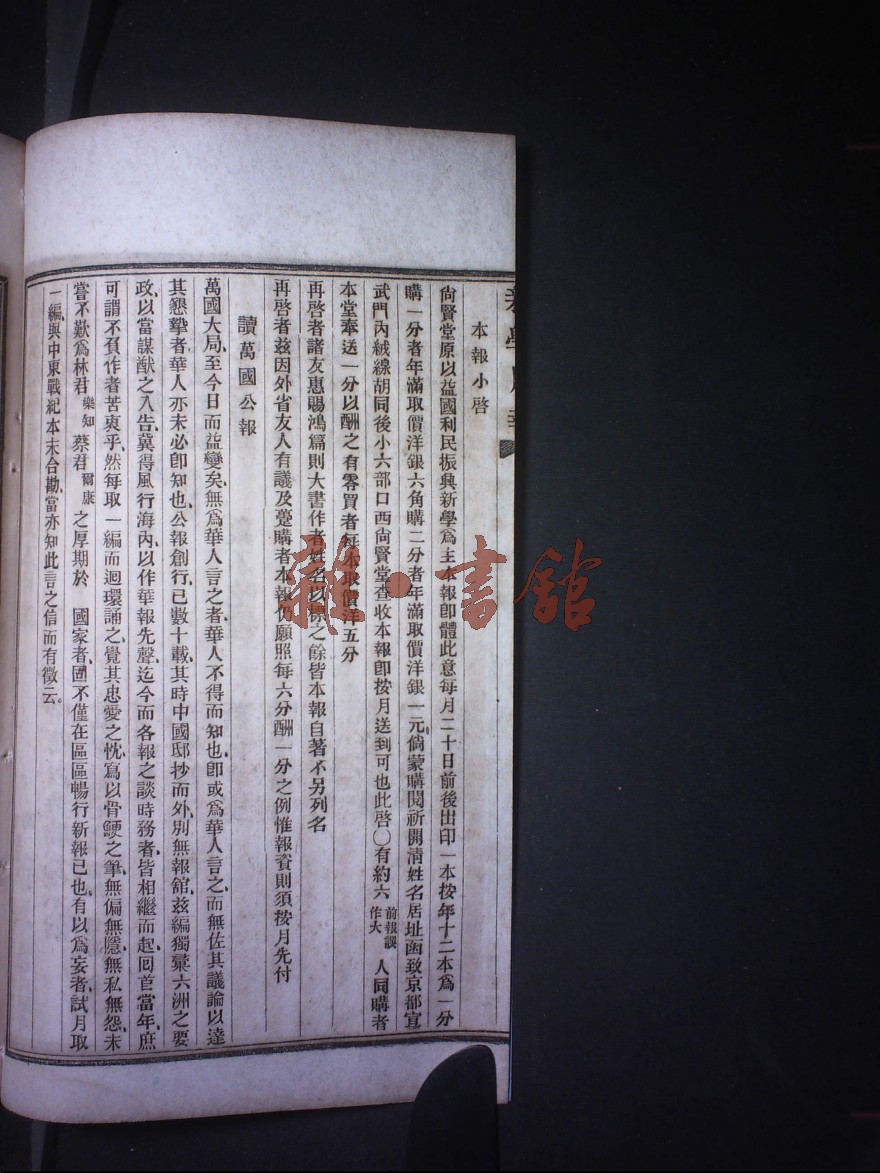 本報小啓
尙賢堂原以益國利民振興新學爲主本報卽體此意每月二十日前後出印一本按年十二本爲一分
購一分者年滿取價洋銀六角購二分者年滿取價洋銀一元倘蒙購閱祈開清姓名居址函致京都宣
武門內絨線胡同後小六部口西尙賢堂查收本報卽按月送到可也此啓〇有約六 前報誤作大 人同購者
本堂奉送一分以酬之有零買者每本取價洋五分
再啓者諸友惠賜鴻篇則大書作者姓名以標之餘皆本報自著不另列名
再啓者茲因外省友人有議及躉購者本報仍願照每六分酬一分之例惟報資則須按月先付
讀萬國公報
萬國大局、至今日而益變矣、無爲華人言之者、華人不得而知也、卽或爲華人言之、而無佐其議論以達
其懇摯者、華人亦未必卽知也、公報創行、已數十載、其時中國邸抄而外、別無報館、茲編獨彙六洲之要
政、以當謀猷之入告、冀得風行海內、以作華報先聲、迄今而各報之談時務者、皆相繼而起、回首當年、庶
可謂不負作者苦衷乎、然每取一編而迴環誦之、覺其忠愛之忱、寫以骨鯁之筆、無偏無隱、無私無怨、未
嘗不歎爲林君 樂知 蔡君 爾康 之厚期於 國家者、固不僅在區區暢行新報已也、有以爲妄者、試月取
一編、與中東戰紀本末合勘、當亦知此言之信而有徵云。
雜·書館